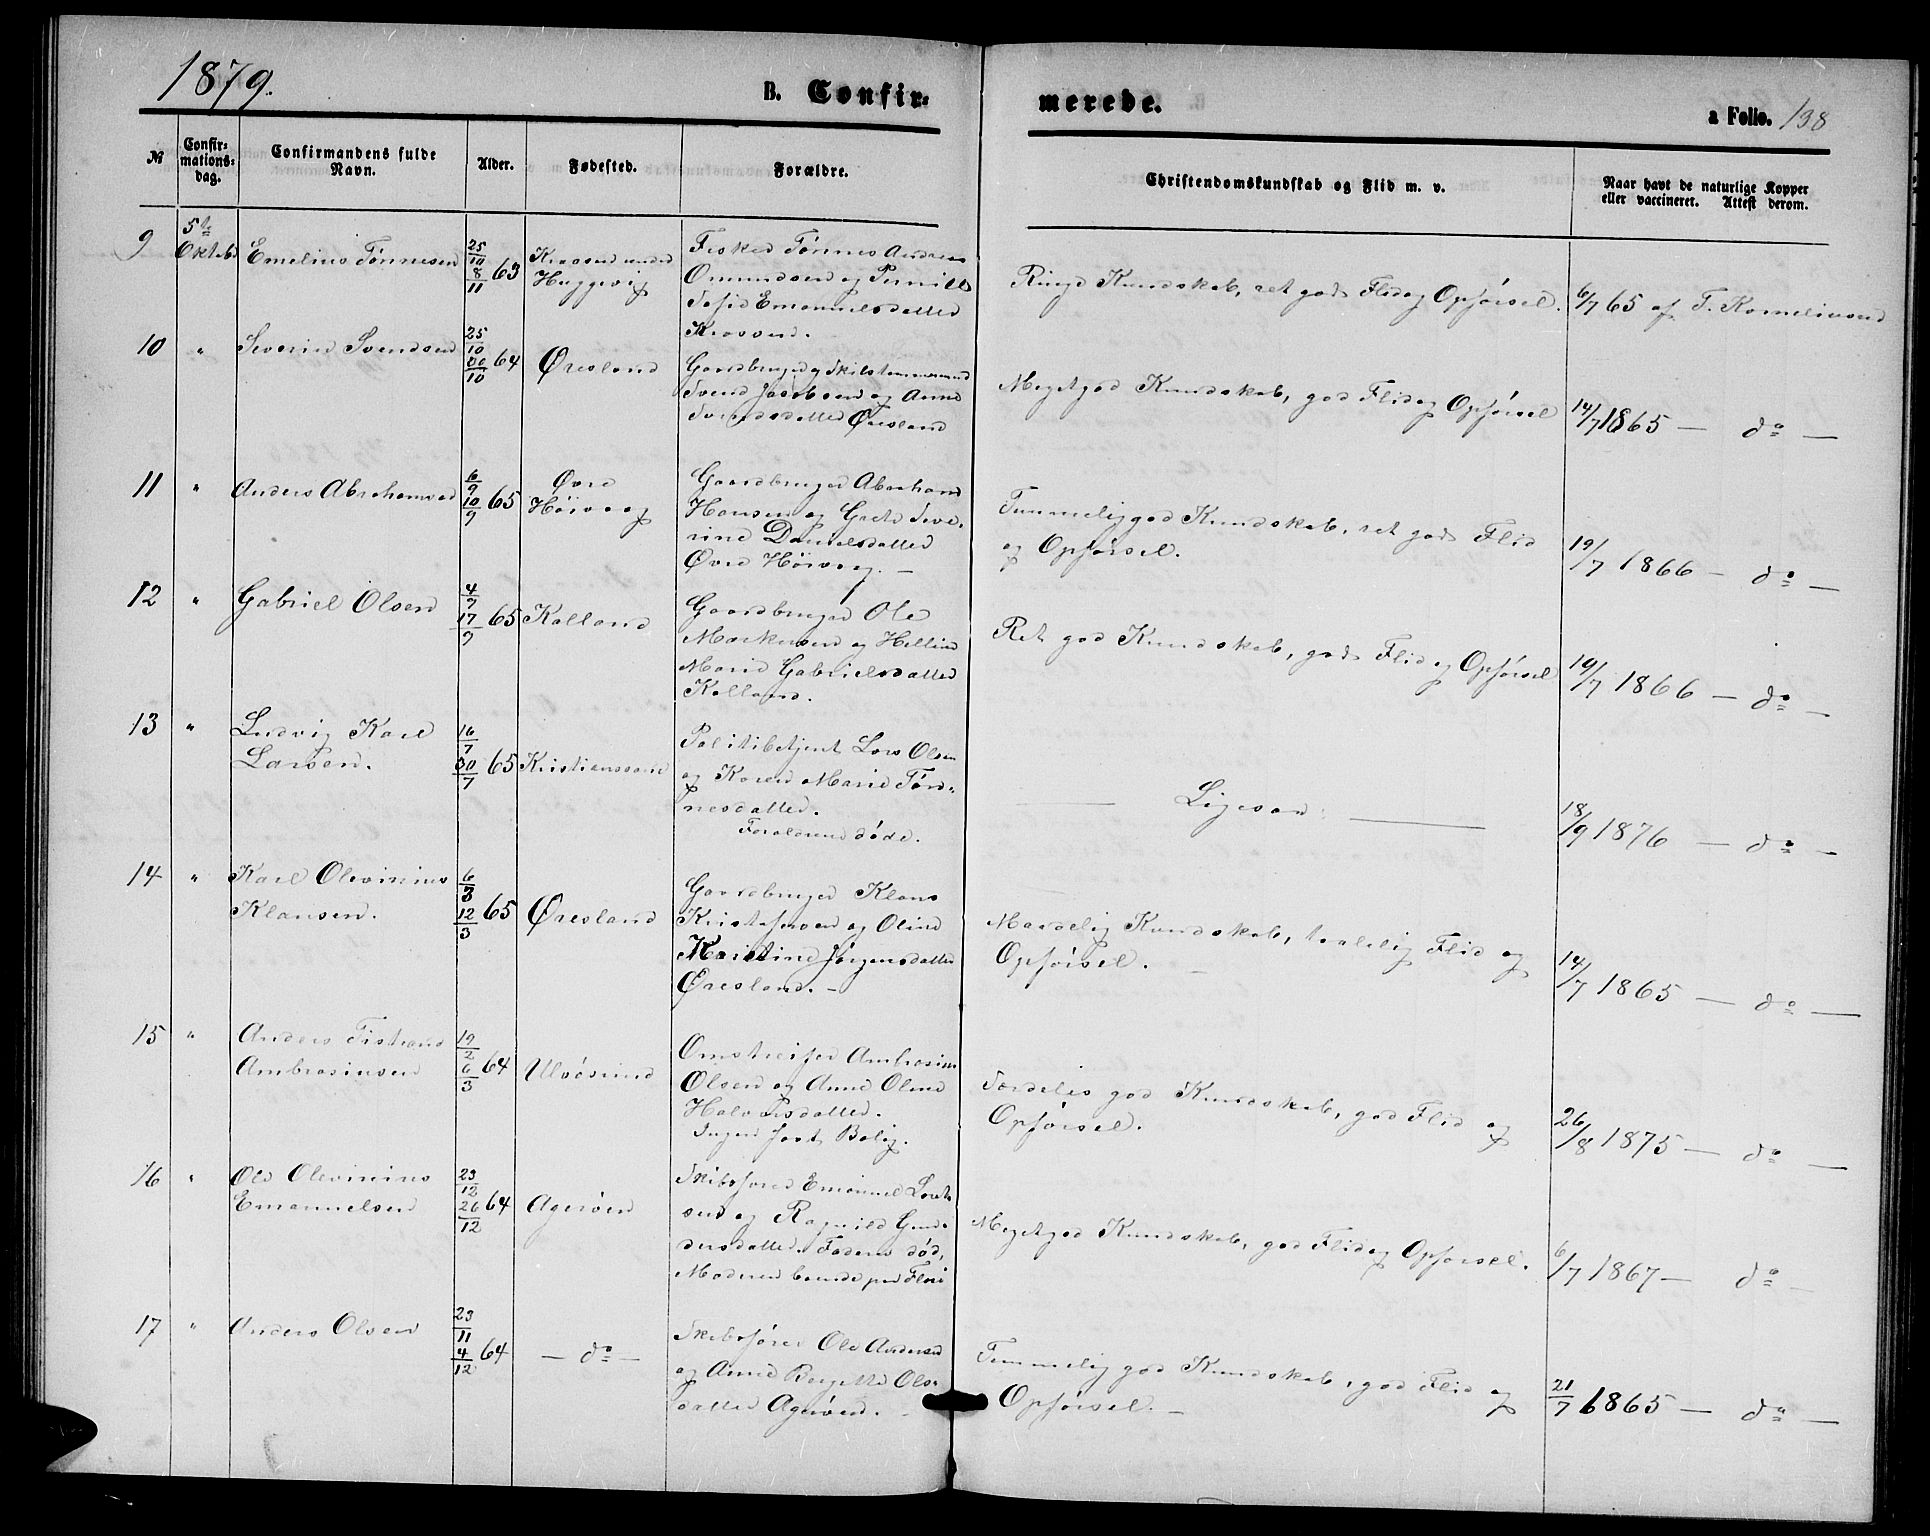 1879.
B. Confir=
merede.
a Folio. 138
№
Confir=
mations=
dag.
Confirmandens fulde
Navn.
Alder.
Fødested.
Forældre.
Christendomskundskab og Flid m. v.
Naar havt de naturlige Kopper
eller vaccineret. Attest derom.
9
5te
Oktob
Emelius Tønnesen
25/10
8/11 63
Huggevig
Fisker Tønnes Andreas
Omundsen og Pernille
Sofie Emanuelsdatter
Ringe Kundskab, ret gods Flid og Opførsel.
6/7 65 af T. Korneliusen
10
"
Severin Svendsen
25/10
30/10 64
Øresland
Gaardbruger og Skilstemmand
Svend Jacobsen og Anne
Svendsdatter Øresland
Megetgod Kundskab, god Flid og Opførsel
14/7 1865 — do —
11
"
Anders Abrahamsen
6/9
10/9 65
Øvre
Høivaag
Gaardbruger Abraham
Hansen og Grete Seve-
rine Danielsdatter
Øvre Høivaag. —
Temmeliggod Kundskab, ret gods Flid
og Opførsel.
19/7 1866 — do —
12
"
Gabriel Olsen
4/9
17/9 65
Kalland
Gaardbruger Ole
Markusen og Helline
Marie Gabrielsdatter
Kalland.
Ret god Kundskab, gods Flid og Opførsel
19/7 1866 — do —
13
"
Ludvig Karl
Larsen.
16/7
30/7 65
Kristianssand
Politibetjent Lars Olsen
og Karen Marie Tøn-
nesdatter.
Forældrene døde.
Ligesaa
18/9 1876 — do —
14
"
Karl Olevinius
Klausen.
6/3
12/3 65
Øresland
Gaardbruger Klaus
Kristofersen og Oline
Kristine Jørgensdatter
Øresland. —
Maadelig Kundskab, taalelig Flid og
Opførsel.
14/7 1865 — do —
15
"
Anders Tistrand
Ambrosiusen
19/2
6/3 64
Ulvøsund
Omstreifer Ambrosius
Olsen og Anne Oline
Halvorsdatter.
Ingen fast Bolig.
Særdeles god Kundskab, god Flid og
Opførsel.
26/8 1875 — do —
16
"
Ole Olevinius
Emanuelsen
23/12
26/12 64
Agerøen
Skibsfører Emanuel
sen og Ragnild Gun-
dersdatter. Faderen død,
Moderen boende paa
Megetgod Kundskab, god Flid og Opførsel.
6/7 1867 — do —
17
"
Anders Olsen
23/11
4/12 64
— do —
Skibsfører Ole Andersen
og Anne Birgitte Ols-
datter Agerøen. —
Temmelig god Kundskab, god Flid og
Opførsel. —
21/7 1865 — do —